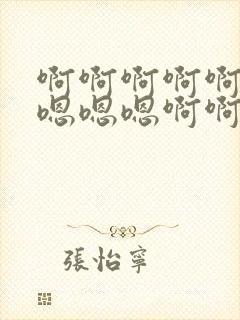 啊啊啊啊啊
嗯嗯嗯啊啊
張怡寧